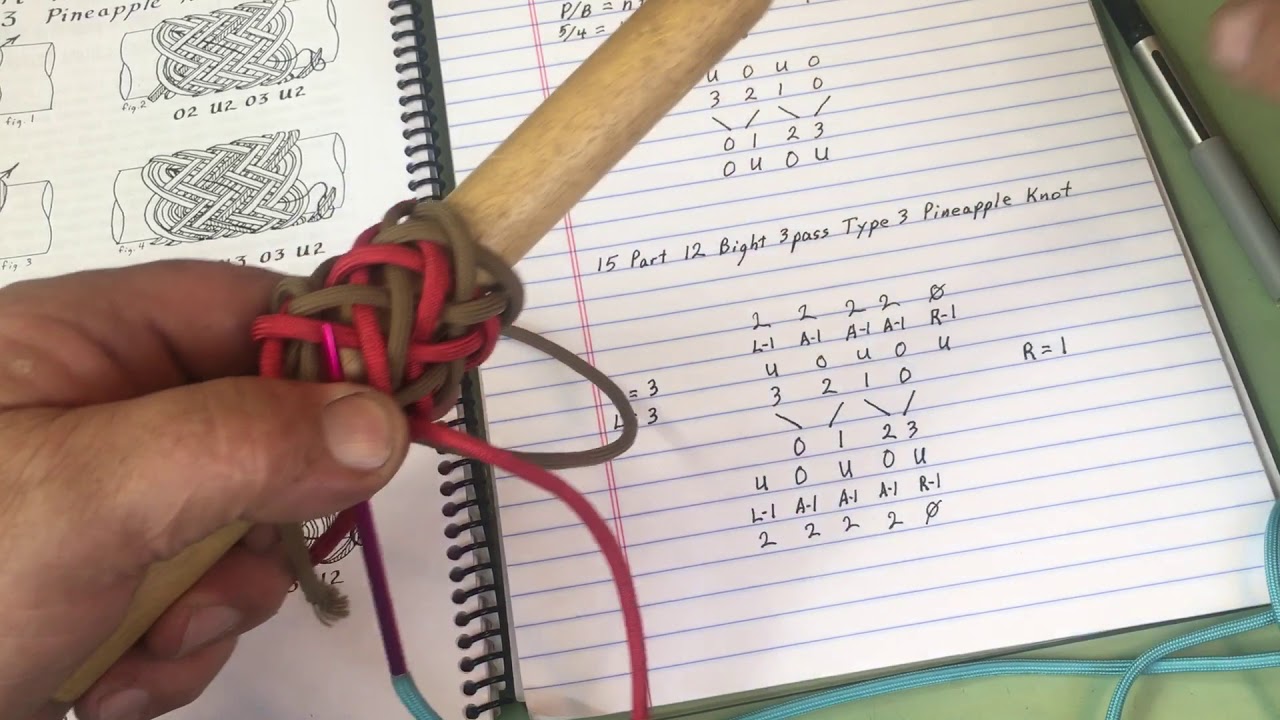 3 Pineapple
fig.1
fig.2
O2 U2 O3 U2
fig.3
fig.4
U3 O3 U2
P/B =
5/4 =
u o u o
3 2 1 0
\ / \ /
0 1 2 3
o u o u
15 Part 12 Bight 3 pass Type 3 Pineapple Knot
2 2 2 2 Ø
L-1 A-1 A-1 A-1 R-1
u o u o u
R = 1
= 3
3 2 1 0
L = 3
\ / \ /
0 1 2 3
u o u o u
L-1 A-1 A-1 A-1 R-1
2 2 2 2 Ø